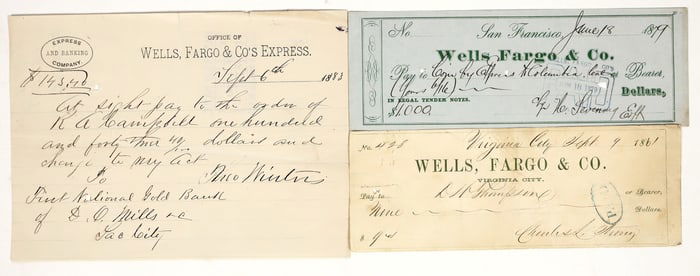 EXPRESS
AND BANKING
COMPANY.
OFFICE OF
WELLS, FARGO & CO'S EXPRESS.
Sept 6th 1883
$143.40
At sight pay to the order of
R A Campbell one hundred
and forty three 40/ dollars and
charge to my Act
To
First National Gold Bank
of D. O. Mills & Co
Sac City
No. San Francisco, June 18 1879
Wells Fargo & Co.
Pay to or Bearer,
Dollars,
IN LEGAL TENDER NOTES.
$1,000.
No. 428 Virginia City Sept 9 1861
WELLS, FARGO & CO.
VIRGINIA CITY.
Pay to Thompson or Bearer,
Nine Dollars.
$9
Charles L. Strong